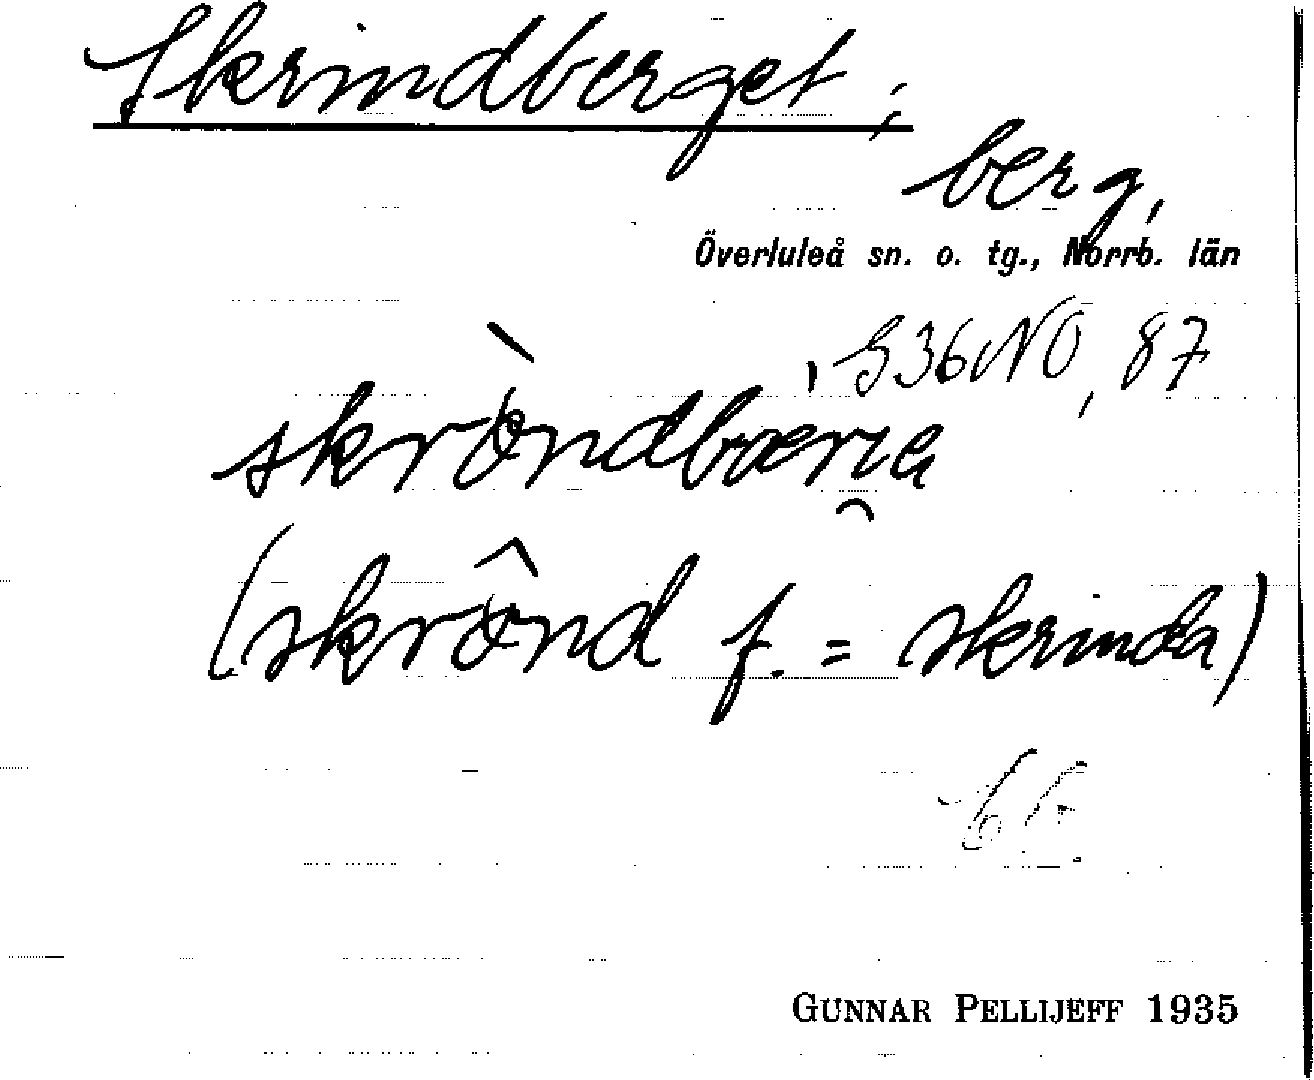 Skrindberget;
berg,
Överluleå sn. o. tg., Norrb. län
S36NO, 87
skrön̂dbæri̯a
(skrön̂d f. = skrinda)
GUNNAR PELLIJEFF 1935